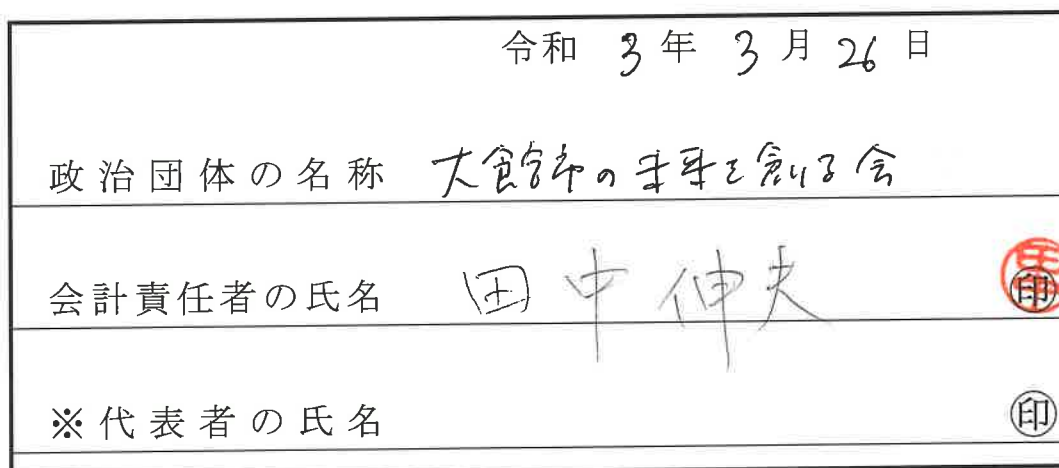 令和 3 年 3 月 26 日
政治団体の名称 大館市の未来を創る会
会計責任者の氏名 田中伸夫 ㊞
※代表者の氏名 ㊞